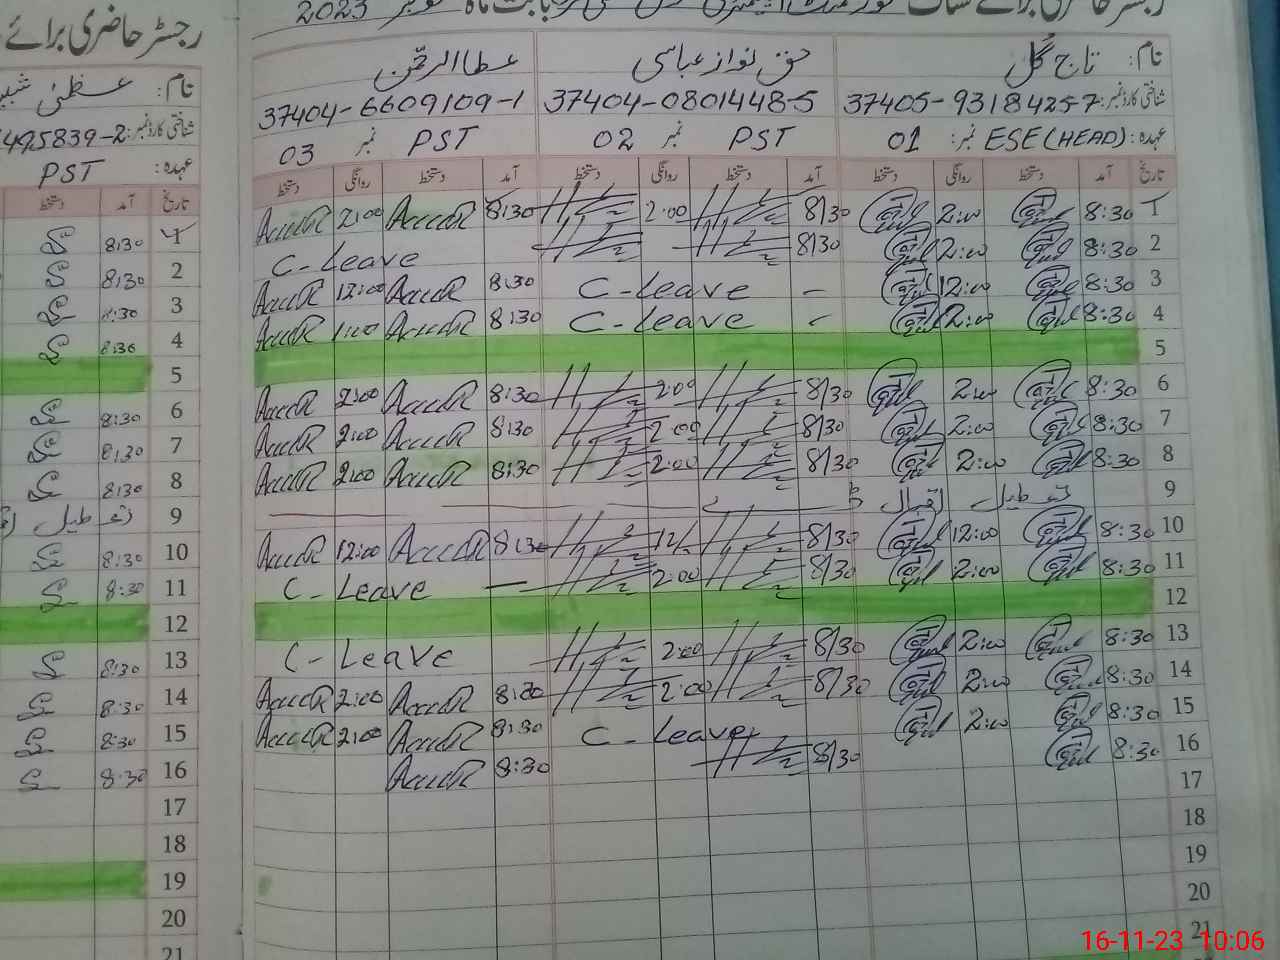 رجسٹر حاضری برائے
2023
نام: تاج گل
شناختی کارڈ نمبر: 37405-9318425-7
عہدہ: ESE (HEAD) نمبر: 01
حق نواز عباسی
37404-0801448-5
PST نمبر 02
عطا الرحمٰن
37404-6609109-1
PST نمبر 03
تاریخ آمد دستخط روانگی دستخط آمد دستخط روانگی دستخط آمد دستخط روانگی دستخط
1 8:30 2:00 8/30 2:00 8:30 2:00
2 8:30 2:00 8/30 C-Leave
3 8:30 12:00 - C-Leave 8:30 12:00
4 8:30 2:00 - C-Leave 8:30 1:00
5
6 8:30 2:00 8/30 2:00 8:30 2:00
7 8:30 2:00 8/30 2:00 8:30 2:00
8 8:30 2:00 8/30 2:00 8:30 2:00
9 تعطیل اقبال ڈے
10 8:30 12:00 8/30 12/ 8:30 12:00
11 8:30 2:00 8/30 2:00 — C-Leave
12
13 8:30 2:00 8/30 2:00 C-Leave
14 8:30 2:00 8/30 2:00 8:30 2:00
15 8:30 2:00 C-Leave 8:30 2:00
16 8:30 8/30 8:30
17
18
19
20
21
رجسٹر حاضری برائے
نام: عظمیٰ شبیر
شناختی کارڈ نمبر: 495839-2
عہدہ: PST
تاریخ آمد دستخط
1 8:30
2 8:30
3 8:30
4 8:30
5
6 8:30
7 8:30
8 8:30
9 تعطیل
10 8:30
11 8:30
12
13 8:30
14 8:30
15 8:30
16 8:30
17
18
19
20
21
16-11-23 10:06